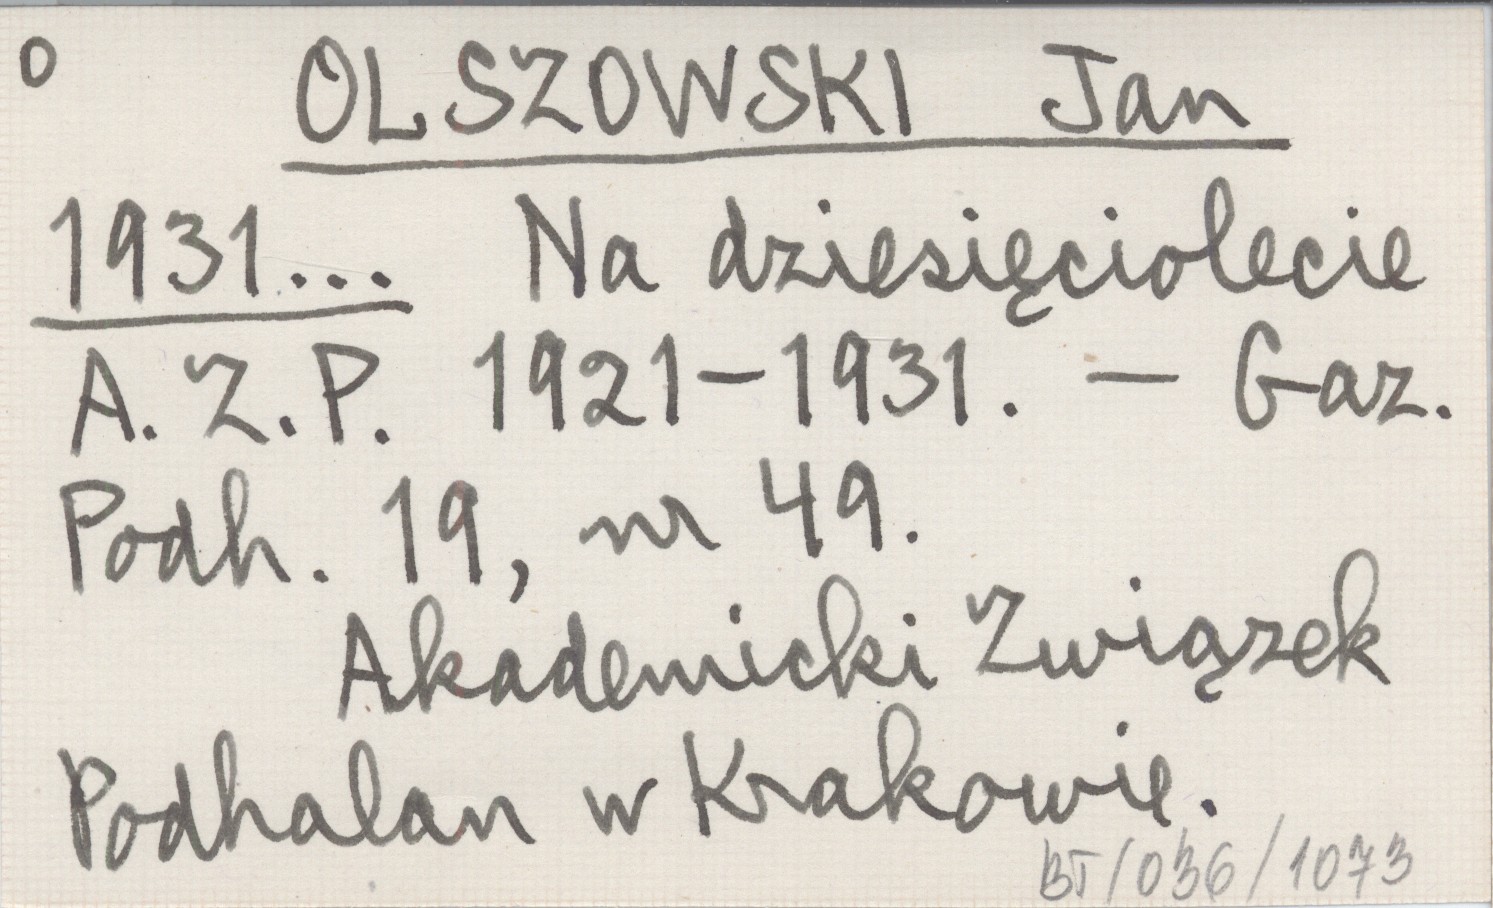 O
OLSZOWSKI Jan
1931... Na dziesięciolecie
A.Z.P. 1921-1931. - Gaz.
Podh. 19, nr 49.
Akademicki Związek
Podhalan w Krakowie.
BT/036/1073